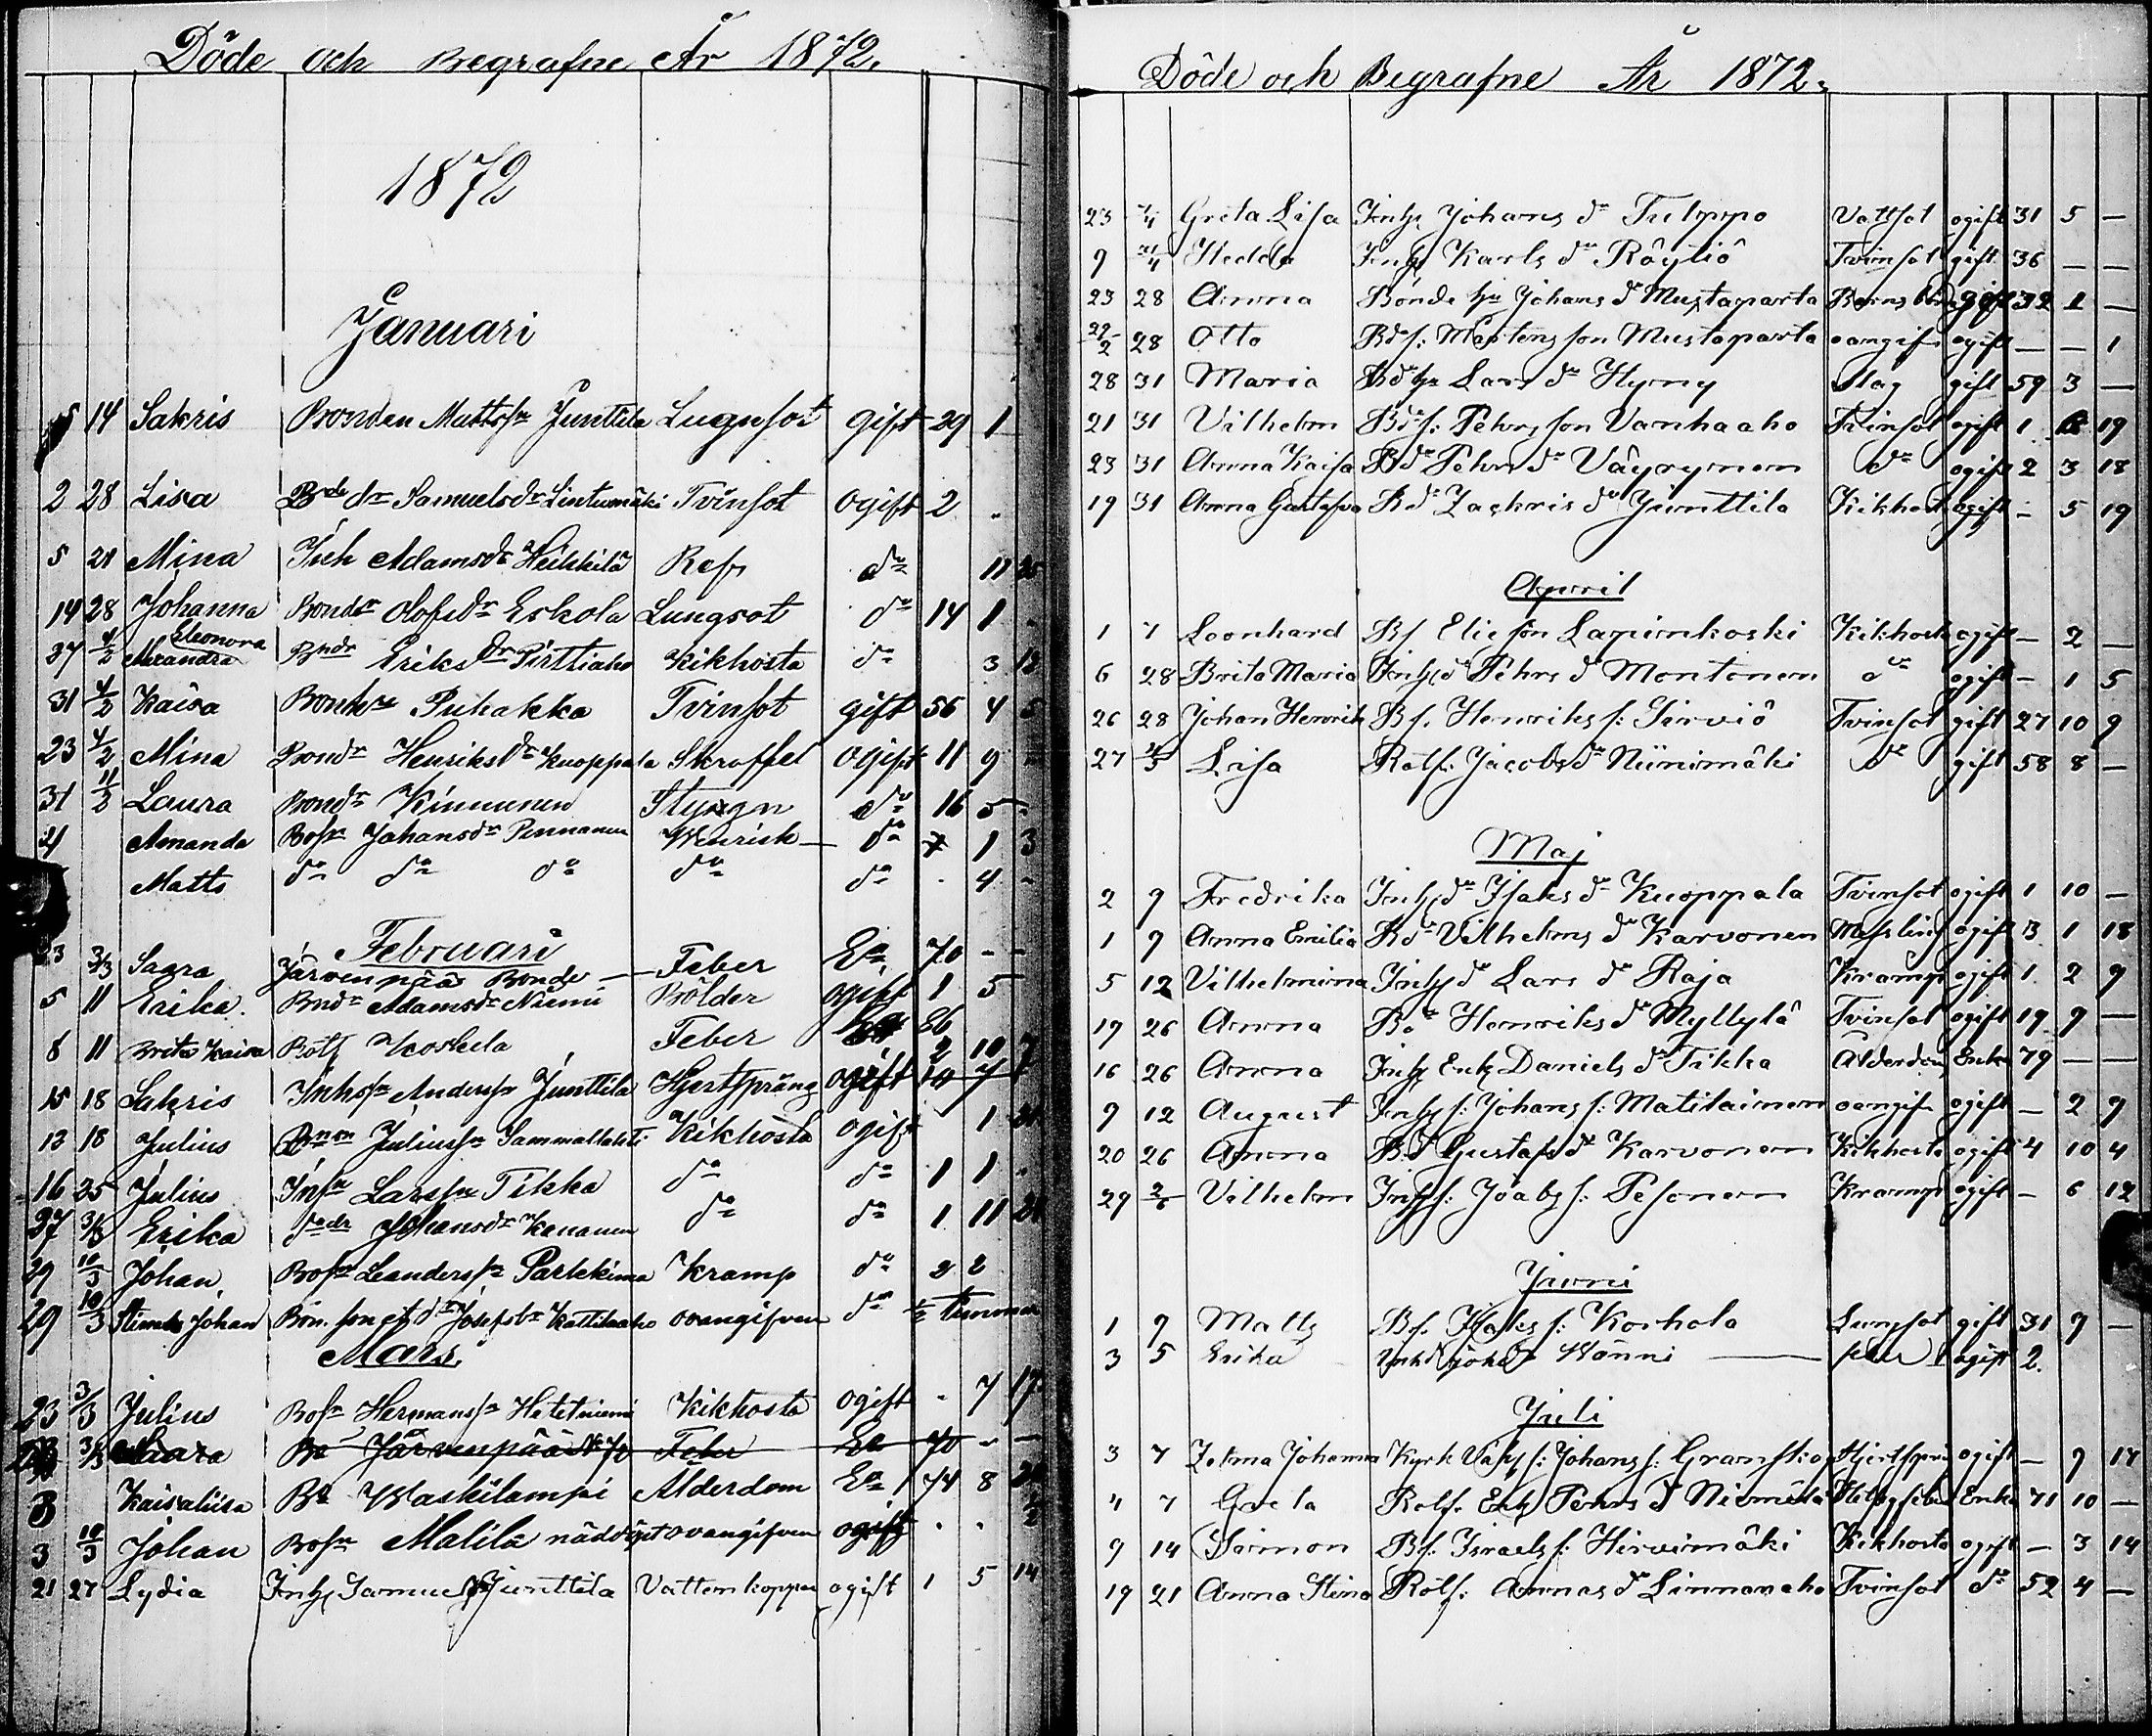 Döde och Begrafne År 1872.
1872
Januari
5 14 Sakris Bonden Mattsn Junttila Lugnsot gift 29 1
2 28 Lisa Bde dr Samuelsdr Lintumäki Tvinsot ogift 2
5 21 Mina Inh Adamsdr Heikkilä Ref do 11 25
14 28 Johanna Bondr Olofsdr Eskola Lungsot do 14 1
Eleonora
27 4/2 Alexandra Bndr Eriksdr Pirttiaho Kikhosta do 3 12
31 4/2 Kaisa Bonhu Puhakka Tvinsot gift 56 4 5
23 4/2 Mina Bondr Henriksdr Knoppala Skroffel ogift 11 9
31 11/2 Laura Bondr Kinnunen Styngn do 16 5
21 Amanda Bosn Johansdr Pennanen do 1 3
Matts do do do do do 4
Februari
23 3/3 Sagra Järvenpää Bonde Feber Ea 70 - -
5 11 Erika. Bndr Adamsdr Niemi Bölder ogift 1 5
8 11 Brita Kaisa Rotf Koskela Feber 86
2 10 7
15 18 Sakris Inhsn Andersn Junttila Hjertspräng ogift 14 7
12 18 Julius Bnsn Juliussn Sammallahti Kikhosta ogift 1 21
16 25 Julius Insn Larssn Tikka do do 1 1
27 3/3 Erika Johansdr Kananen do do 1 11 21
29 10/3 Johan Bosn Leanderssn Parkkima Kramp do 2 2
29 10/3 Johan Bon. son Josefsdr Kattilaaho oangifven do 1/2 timmar
Mars
23 3/3 Julius Bosn Hermanssn Hetetniemi Kikhosta ogift . 7 17
3/3 Bo Järvenpää No 70 Feber Ea 70 - -
3 Kaisaliisa Bo Waskilampi Ålderdom Ea 74 8
3 10/3 Johan Bosn Malila nöddöpt ovangifven ogift . . 1/2
21 27 Lydia Inhs Samuelsdr Junttila Vattenkoppor ogift 1 5 14
Döde och Begrafne År 1872.
23 1/4 Greta Lisa Inhs Johans dr Tulppo Vattsot ogift 31 5 —
9 21/4 Hedda Inhs Karls dr Röytiö Tvinsot gift 36 — —
23 28 Anna Bonde hu Johans dr Mustaparta Barnsbörd gift 32 1 —
29/2 28 Otto Bds: Mårtens son Mustaparta oangif ogift — — 1
28 31 Maria Bdhu Lars dr Hyrny slag gift 59 3 —
21 31 Vilhelm Bds: Pehrs son Vanhaaho Tvinsot ogift 1 19
23 31 Anna Kaisa Bdr Pehrs dr Väyrynen do ogift 2 3 18
19 31 Anna Gustafva Bdr Zachris dr Junttila Kikhost ogift - 5 19
April
1 7 Leonhard Bs Elieson Lapinkoski Kikhosta ogift — 2 —
6 28 Brita Maria Inhs dr Pehrs dr Montonen do ogift - 1 5
26 28 Johan Henrik Bs. Henriks s: Sirviö Tvinsot gift 27 10 9
27 4/5 Lisa Rotf: Jacobs dr Niinimäki do gift 58 8 —
Maj
2 9 Fredrika Inhs dr Isaks dr Kuoppala Tvinsot ogift 1 10 —
1 9 Anna Emilia Bdr Vilhelms dr Karvonen Messling ogift 3 1 18
5 12 Vilhelmina Inhs dr Lars dr Raja Kramp ogift 1 2 9
19 26 Anna Bdr Henriks dr Myllylä Tvinsot ogift 19 9 —
16 26 Anna Inhs Enk Daniels dr Tikka Ålderdom Enka 79 — —
9 12 August Inhs s: Johans s: Matilainen oangif ogift — 2 9
20 26 Anna Bdr Gustafs dr Karvonen Kikhosta ogift 4 10 4
29 2/6 Vilhelm Inhs s: Joabs s: Pesonen Kramp ogift — 6 12
Juni
1 9 Matts Bs. Isaks s: Korhola Lungsot gift 31 9 —
3 5 Erika Inh Joh dr Hänni — feber ogift 2.
Juli
3 7 Zelma Johanna Kyrk Väkt s: Johans s: Granskog Hjertspr ogift — 9 17
4 7 Greta Rotf. Enk Pehrs dr Niemelä Enka 71 10 —
9 14 Simon Bs: Israels s: Hirvimäki Kikhosta ogift — 3 14
19 21 Anna Stina Rotf: Annas dr Linnanaho Tvinsot do 52 4 —